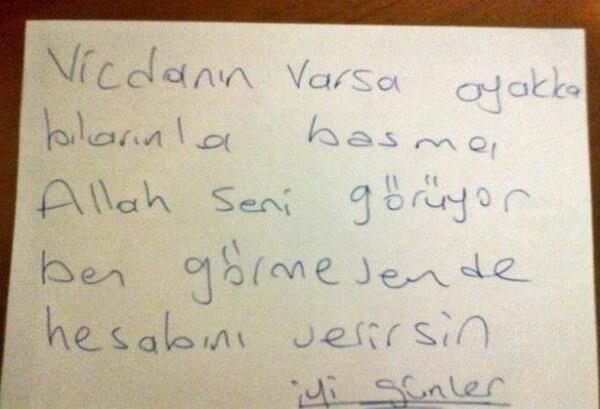 Vicdanın varsa ayakka
bılarınla basma
Allah seni görüyor
ben görmesende
hesabını verirsin
iyi günler